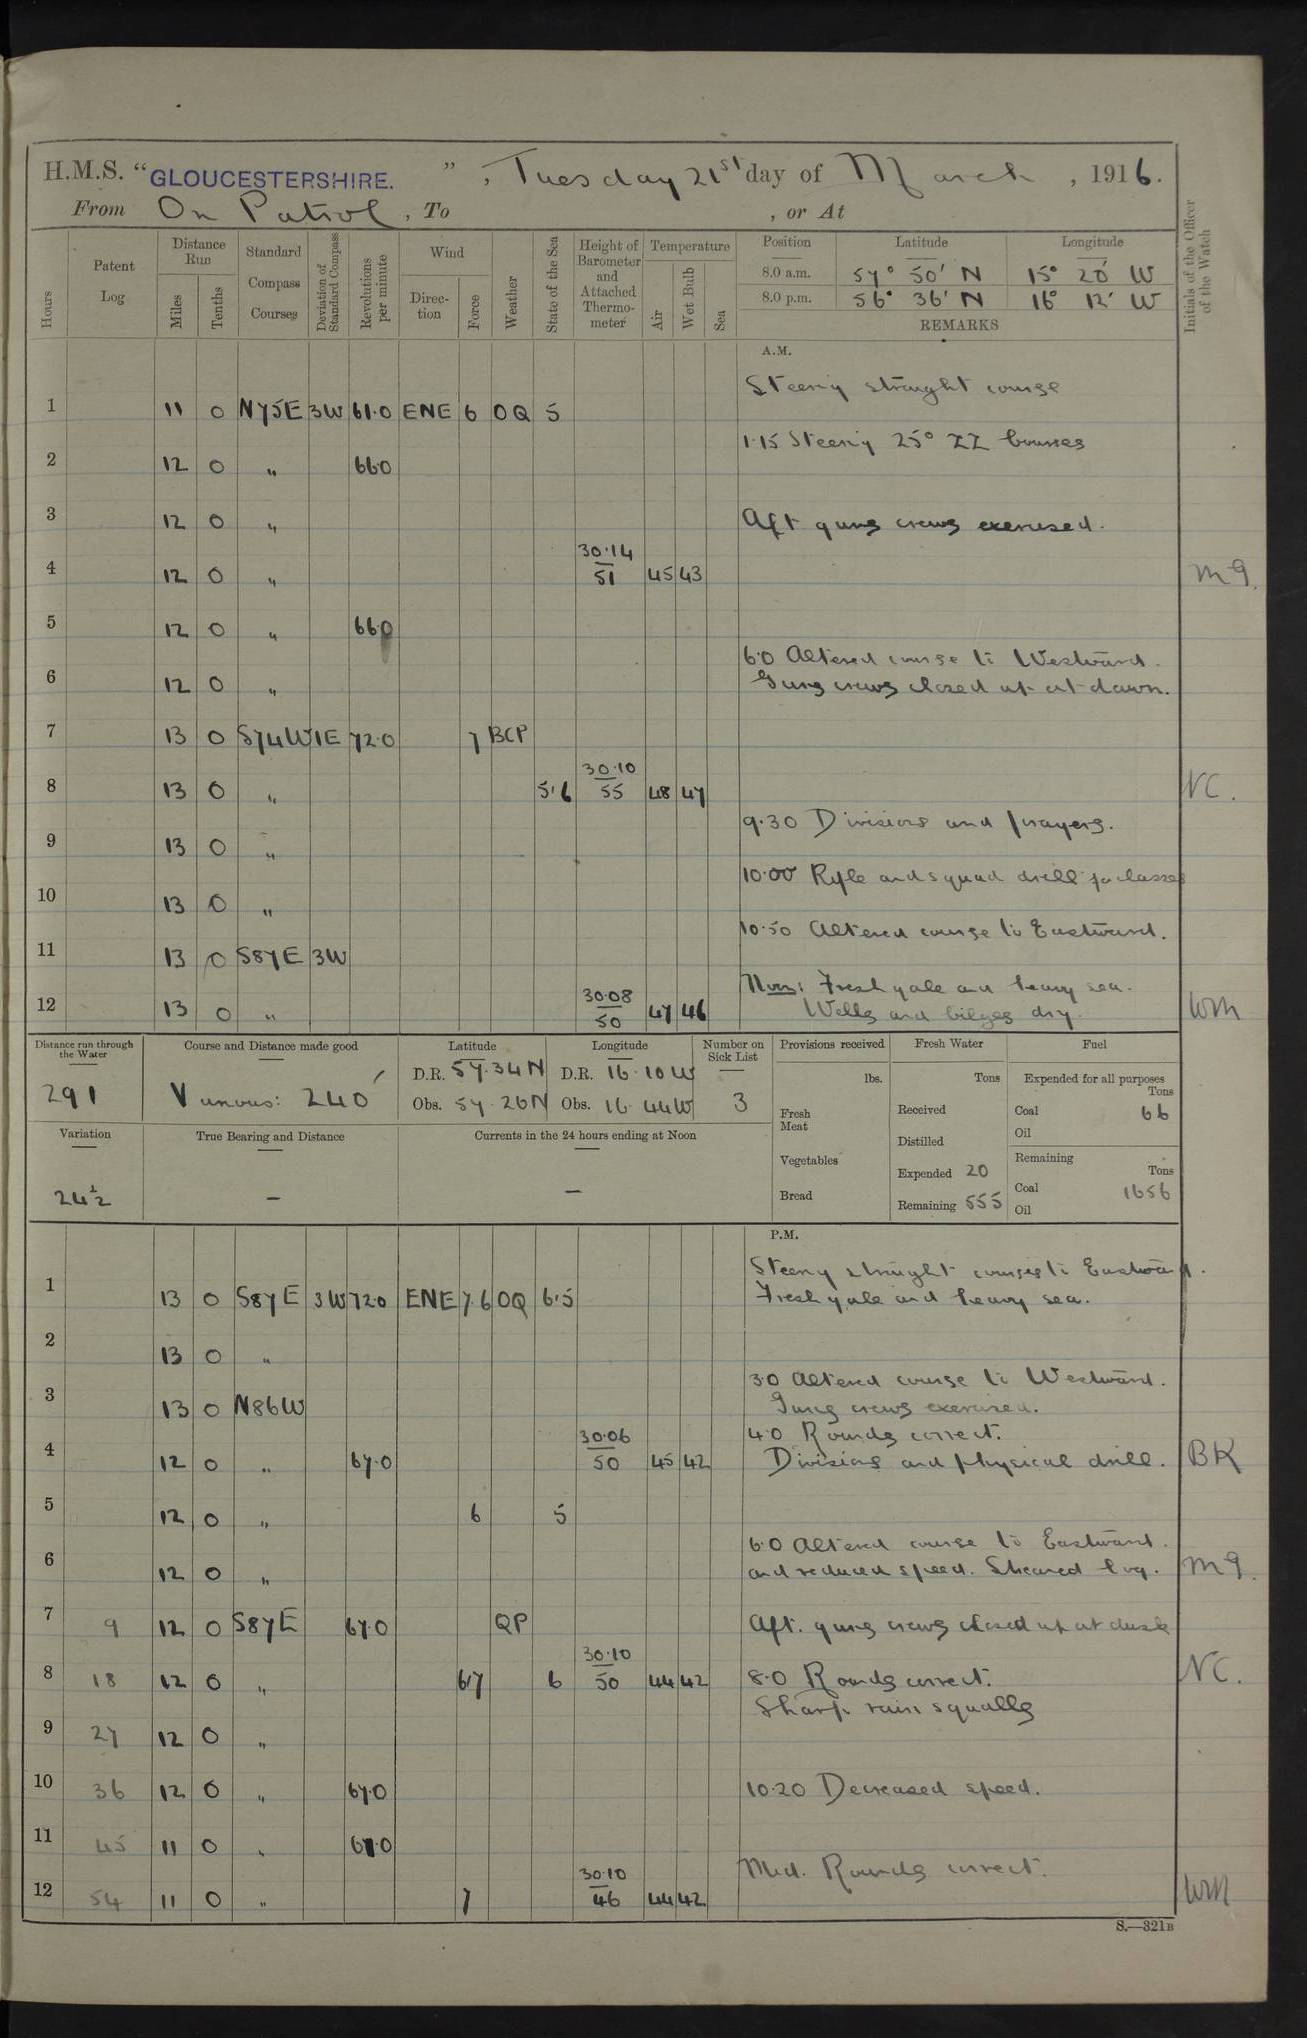 H.M.S. "GLOUCESTERSHIRE.", Tuesday 21st day of March, 1916.
From On Patrol, To , or At
Hours
Patent Log
Distance Run
Miles
Tenths
Standard Compass Courses
Deviation of Standard Compass
Revolutions per minute
Wind
Direction
Force
Weather
State of the Sea
Height of Barometer and Attached Thermometer
Temperature
Air
Wet Bulb
Sea
Position Latitude Longitude
8.0 a.m. 57° 50' N 15° 20' W
8.0 p.m. 56° 36' N 16° 12' W
REMARKS
Initials of the Officer of the Watch
A.M.
Steering straight course
1 11 0 N75E 3W 61.0 ENE 6 OQ 5
1.15 Steering 25° ZZ courses
2 12 0 " 66.0
3 12 0 " Aft guns crews exercised.
4 12 0 " 30.14 51 45 43 MG.
5 12 0 " 66.0
6.0 Altered course to Westward.
6 12 0 " Guns crews closed up at dawn.
7 13 0 S74W 1E 72.0 7 BCP
8 13 0 " 5.6 30.10 55 48 47 NC.
9.30 Divisions and prayers.
9 13 0 "
10.00 Rifle and squad drill for classes
10 13 0 "
10.50 Altered course to Eastward.
11 13 0 S87E 3W
Noon: Fresh gale and heavy sea.
12 13 0 " 30.08 50 47 46 Wells and bilges dry. WM
Distance run through the Water
291
Course and Distance made good
Various: 240'
Latitude
D.R. 57.34N
Obs. 57.26N
Longitude
D.R. 16.10W
Obs. 16.44W
Number on Sick List
3
Provisions received
lbs.
Fresh Meat
Vegetables
Bread
Fresh Water
Tons
Received
Distilled
Expended 20
Remaining 555
Fuel
Expended for all purposes
Tons
Coal 66
Oil
Remaining
Tons
Coal 1656
Oil
Variation
24½
True Bearing and Distance
-
Currents in the 24 hours ending at Noon
-
P.M.
Steering straight courses to Eastward.
1 13 0 S87E 3W 72.0 ENE 7.6 OQ 6.5 Fresh gale and heavy sea.
2 13 0 "
3.0 Altered course to Westward.
3 13 0 N86W Guns crews exercised.
4.0 Rounds correct.
4 12 0 " 67.0 30.06 50 45 42 Divisions and physical drill. BK
5 12 0 " 6 5
6.0 Altered course to Eastward.
6 12 0 " and reduced speed. Streamed log. MG.
7 9 12 0 S87E 67.0 QP Aft. guns crews closed up at dusk
8 18 12 0 " 6.7 6 30.10 50 44 42 8.0 Rounds correct. NC.
Sharp rain squalls
9 27 12 0 "
10 36 12 0 " 67.0 10.20 Decreased speed.
11 45 11 0 "
Mid. Rounds correct.
12 54 11 0 " 7 30.10 46 44 42 WM
S.—321B